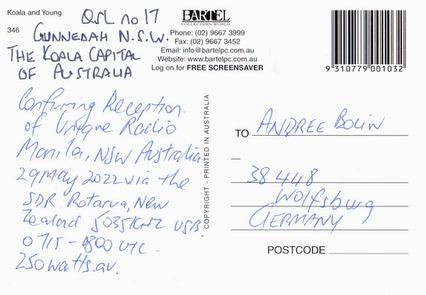 Koala and Young.
346
QSL no 17
GUNNEDAH N.S.W.
THE KOALA CAPITAL
OF AUSTRALIA
BARTEL
COLLECTORS WORLD
Phone: (02) 9667 3999
Fax: (02) 9667 3452
Email: info@bartelpc.com
Website: www.bartelpc.com
Log on for FREE SCREENSAVER
9 310779 001032
Confirming Reception
of Unique Radio
Manila, NSW Australia
29 May 2022 via the
SDR Rotorua, New
Zealand 5035KHz USB.
0715-0800 UTC.
250watts.av.
COPYRIGHT - PRINTED IN AUSTRALIA
TO ANDREE BOLIN
38448
Wolfsburg
GERMANY
POSTCODE